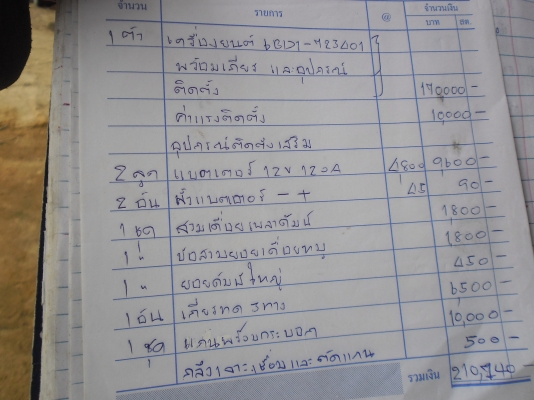 จำนวน รายการ @ จำนวนเงิน
บาท สต.
1 ตัว เครื่องยนต์ 6BD1-423401
พร้อมเกียร์ และอุปกรณ์
ติดตั้ง 170000 -
ค่าแรงติดตั้ง 10,000 -
อุปกรณ์ติดตั้งเสริม
2 ลูก แบตเตอร์ 12V 120A 4800 9600 -
2 อัน ขั้วแบตเตอร์ - + 45 90 -
1 ชุด 1800 -
1 " 1800 -
1 " ยอยดัมป์ใหญ่ 450 -
1 อัน เกียร์ทด 3 ทาง 6500 -
1 ชุด แกนพร้อมกระบอก 10,000 -
กลึงเจาะเชื่อมและตัดแกน 500 -
รวมเงิน 210,740